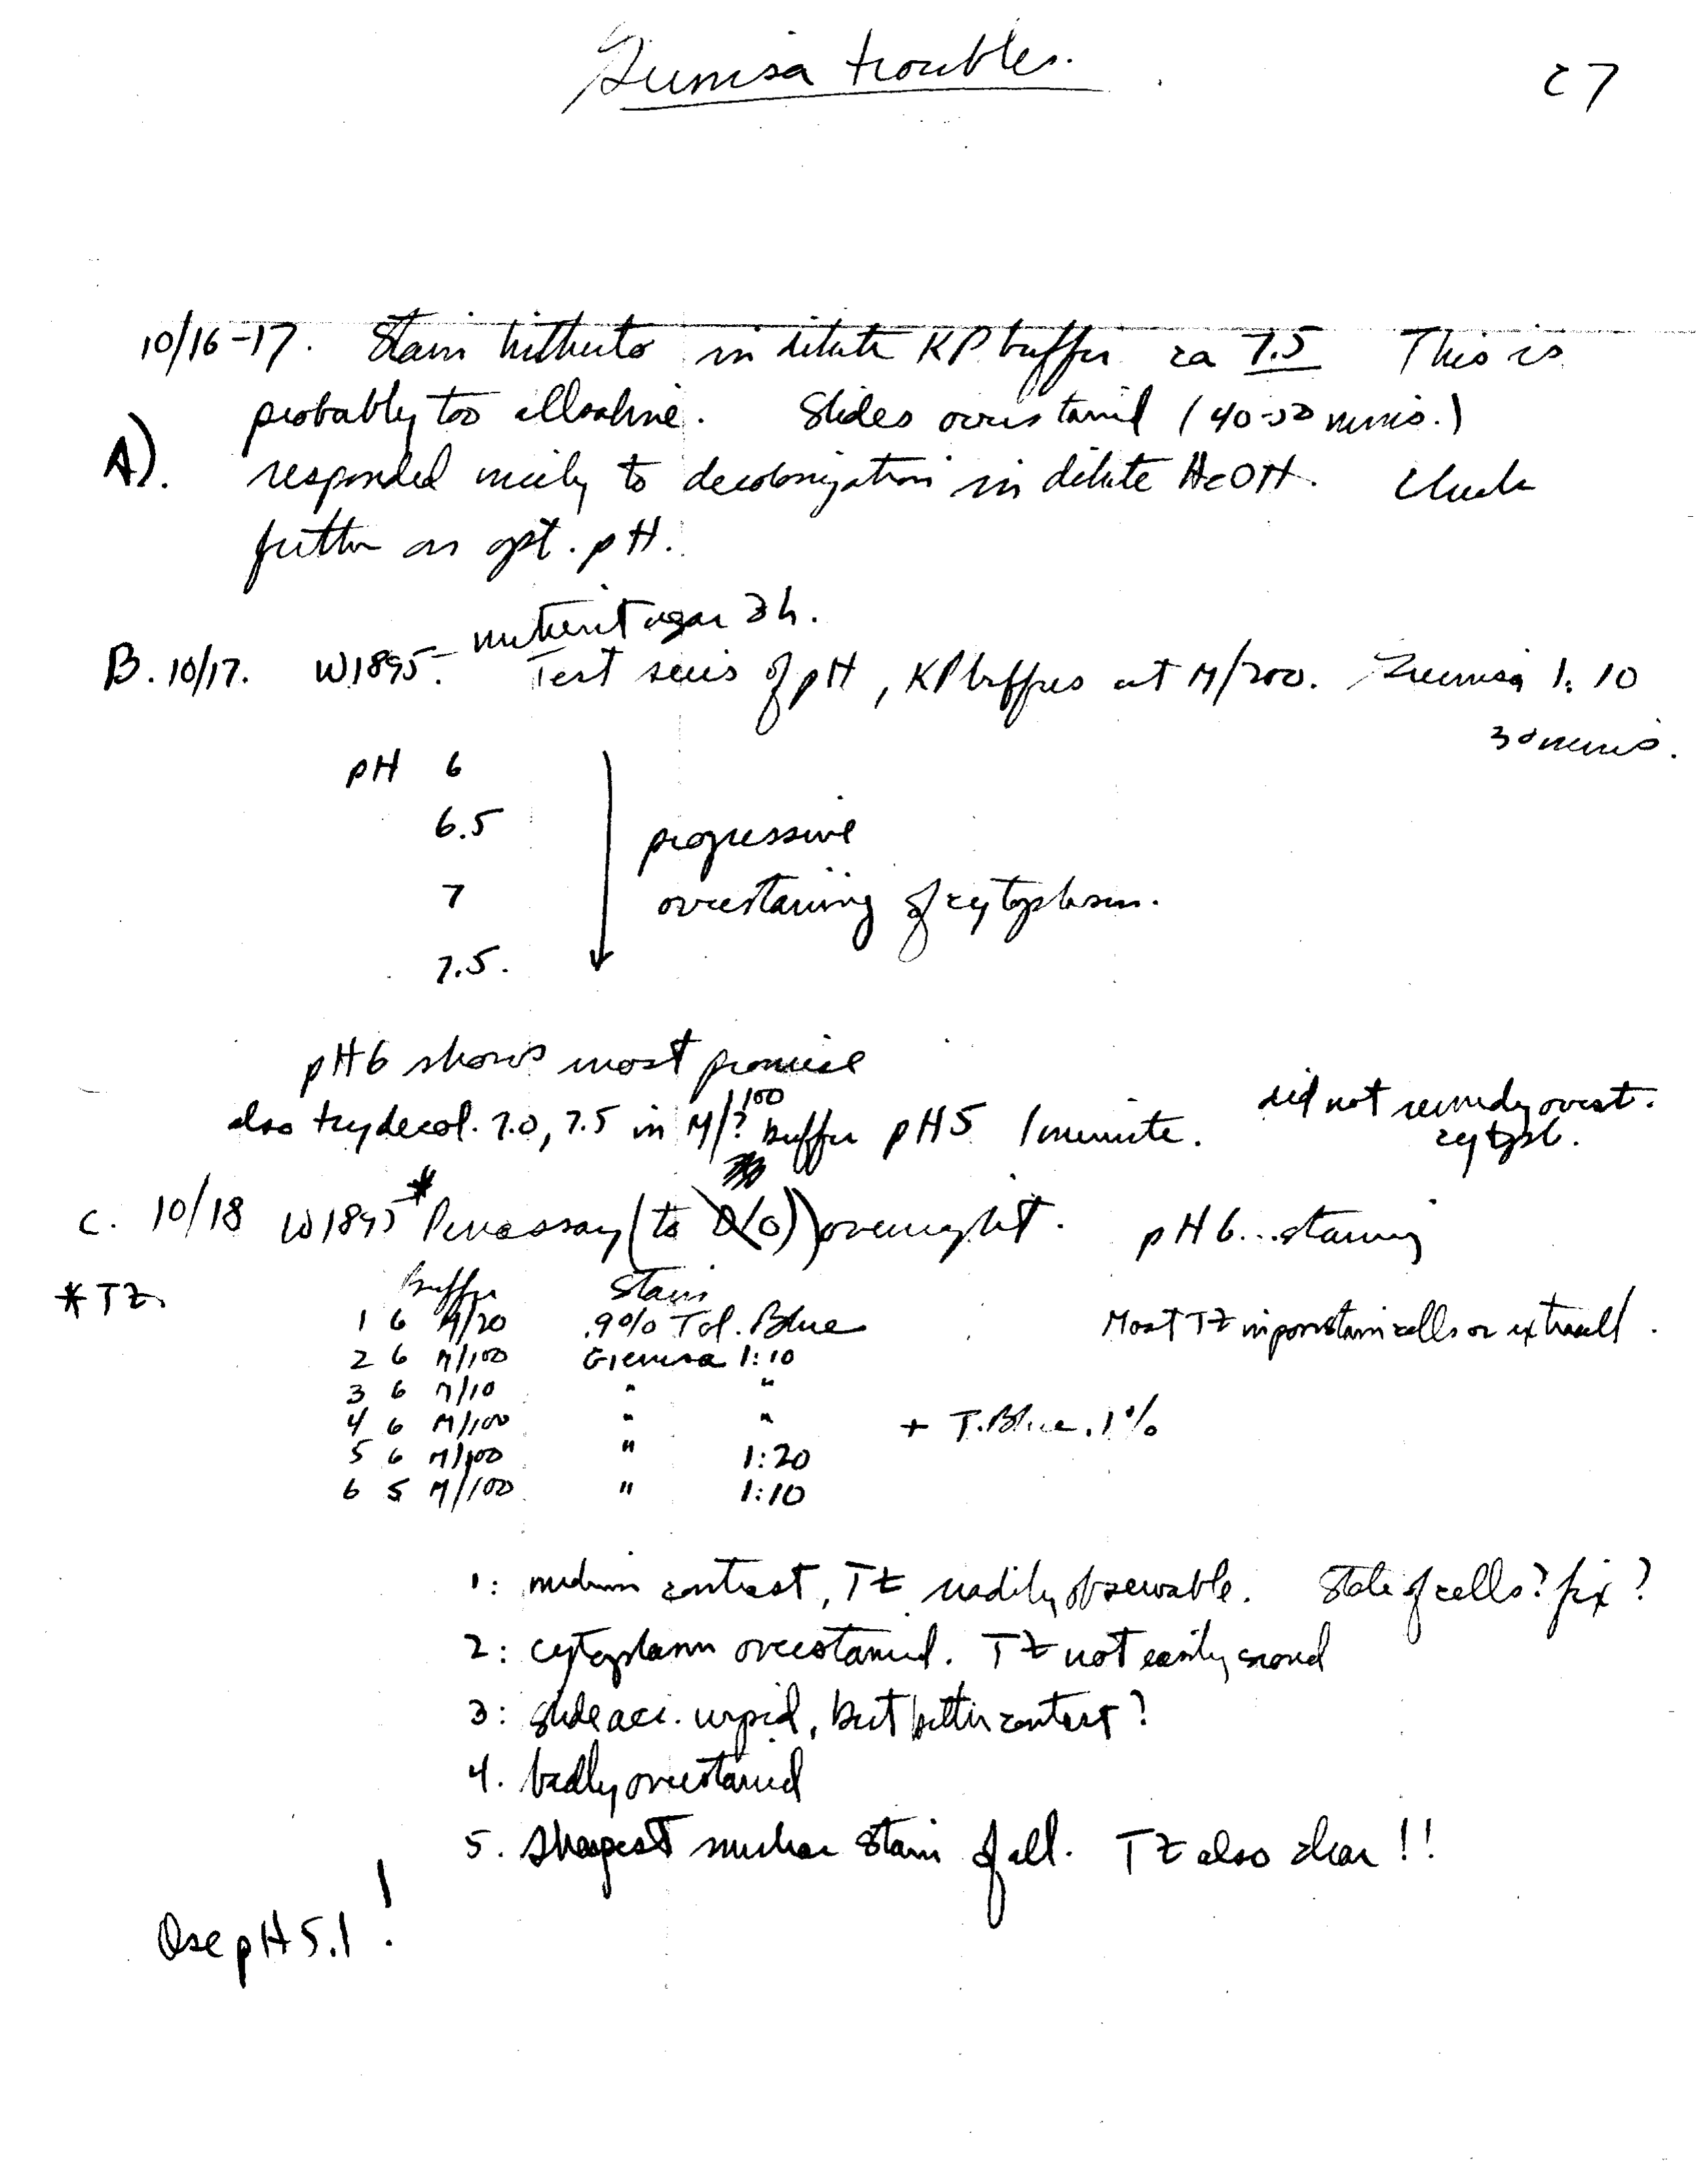 Giemsa troubles.
C7
10/16-17. Stain hitherto in dilute KP buffer ca 7.5 This is
probably too alkaline. Slides overstained (40-50 mins.)
A). responded nicely to decolorization in dilute HcOH. Check
further on opt. pH.
nutrient agar 3h.
B. 10/17. W1895. Test series of pH, KP buffers at M/200. Giemsa 1:10
30 mins.
pH 6
6.5 progressive
7 overstaining of cytoplasm.
7.5.
pH 6 shows most promise
also try decol. 7.0, 7.5 in M/? 100 buffer pH5 1 minute. did not remedy overst.
cytopl.
C. 10/18 W1895* Penassay (to ) overnight. pH 6...staining
* TZ. Buffer Stain
1 6 M/20 .9% Tol. Blue Most TZ in poor stain cells or extracell.
2 6 M/100 Giemsa 1:10
3 6 M/10 " "
4 6 M/100 " " + T. Blue .1%
5 6 M/100 " 1:20
6 5 M/100 " 1:10
1: medium contrast, TZ readily observable. State of cells? fix?
2: cytoplasm overstained. TZ not easily scored
3: slide acc. wiped, but better contrast?
4. badly overstained
5. sharpest nuclear stain of all. TZ also clear!!
Use pH 5.1!